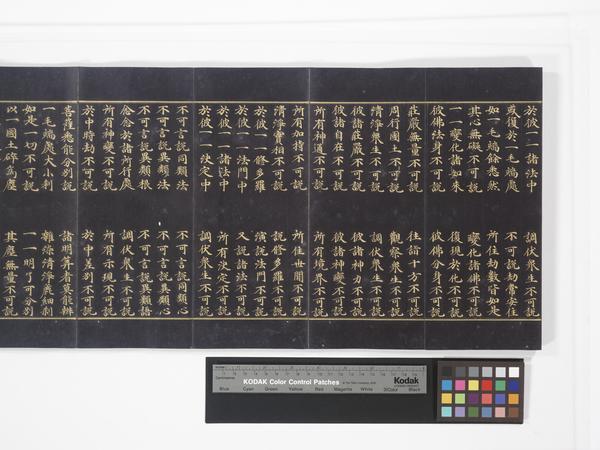 於彼一一諸法中 調伏衆生不可說
或復於一毛端處 不可說劫常安住
如一毛端餘悉然 所住劫數皆如是
其心無礙不可說 變化諸佛不可說
一一變化諸如來 復現於化不可說
彼佛法身不可說 彼佛分身不可說
莊嚴無量不可說 往詣十方不可說
周行國土不可說 觀察衆生不可說
清淨衆生不可說 調伏衆生不可說
彼諸莊嚴不可說 彼諸神力不可說
彼諸自在不可說 彼諸神變不可說
所有神通不可說 所有境界不可說
所有加持不可說 所住世間不可說
清淨實相不可說 說修多羅不可說
於彼一一修多羅 演說法門不可說
於彼一一法門中 又說諸法不可說
於彼一一諸法中 所有決定不可說
於彼一一決定中 調伏衆生不可說
不可言說同類法 不可言說同類心
不可言說異類法 不可言說異類心
不可言說異類根 不可言說異類語
念念於諸所行處 調伏衆生不可說
所有神變不可說 所有示現不可說
於中時劫不可說 於中差別不可說
菩薩悉能分別說 諸明算者莫能辨
一毛端處大小刹 雜染清淨麁細刹
如是一切不可說 一一明了可分別
以一國土碎為塵 其塵無量不可說
KODAK Color Control Patches
Kodak
Blue Cyan Green Yellow Red Magenta White 3/Color Black